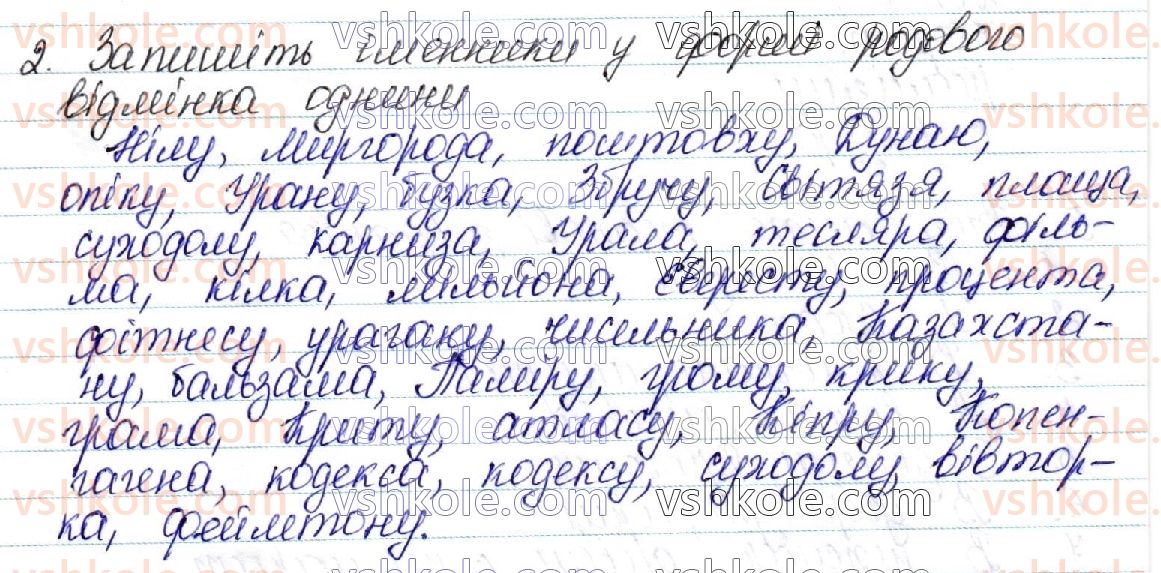 2. Запишіть іменники у формі родового
відмінка однини
Нілу, Миргорода, поштовху, Дунаю,
опіку, Урану, бузка, Збручу, Світязя, плаща,
суходолу, карниза, Урала, тесляра, філь-
ма, кілка, мільйона, Евересту, процента,
фітнесу, урагану, чисельника, Казахста-
ну, бальзама, Паміру, грому, крику,
грама, Криту, атласу, Кіпру, Копен-
гагена, кодекса, кодексу, суходолу, вівтор-
ка, фейлетону.